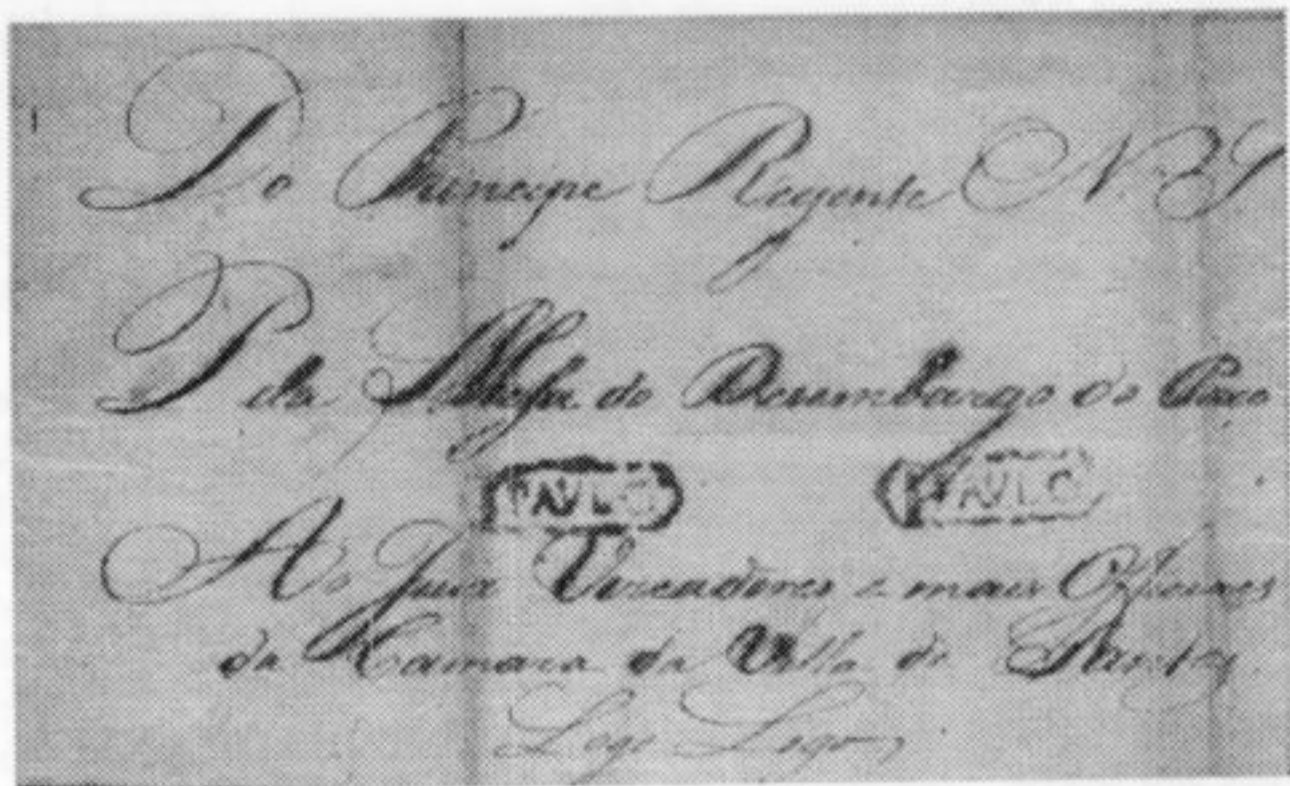 Do Principe Regente N. S
P da Meza do Desembargo do Paco
PAVLO PAVLO
Ao Juiz Vereadores e mais Officiaes
da Camara da Villa de Santos
Logo Logo